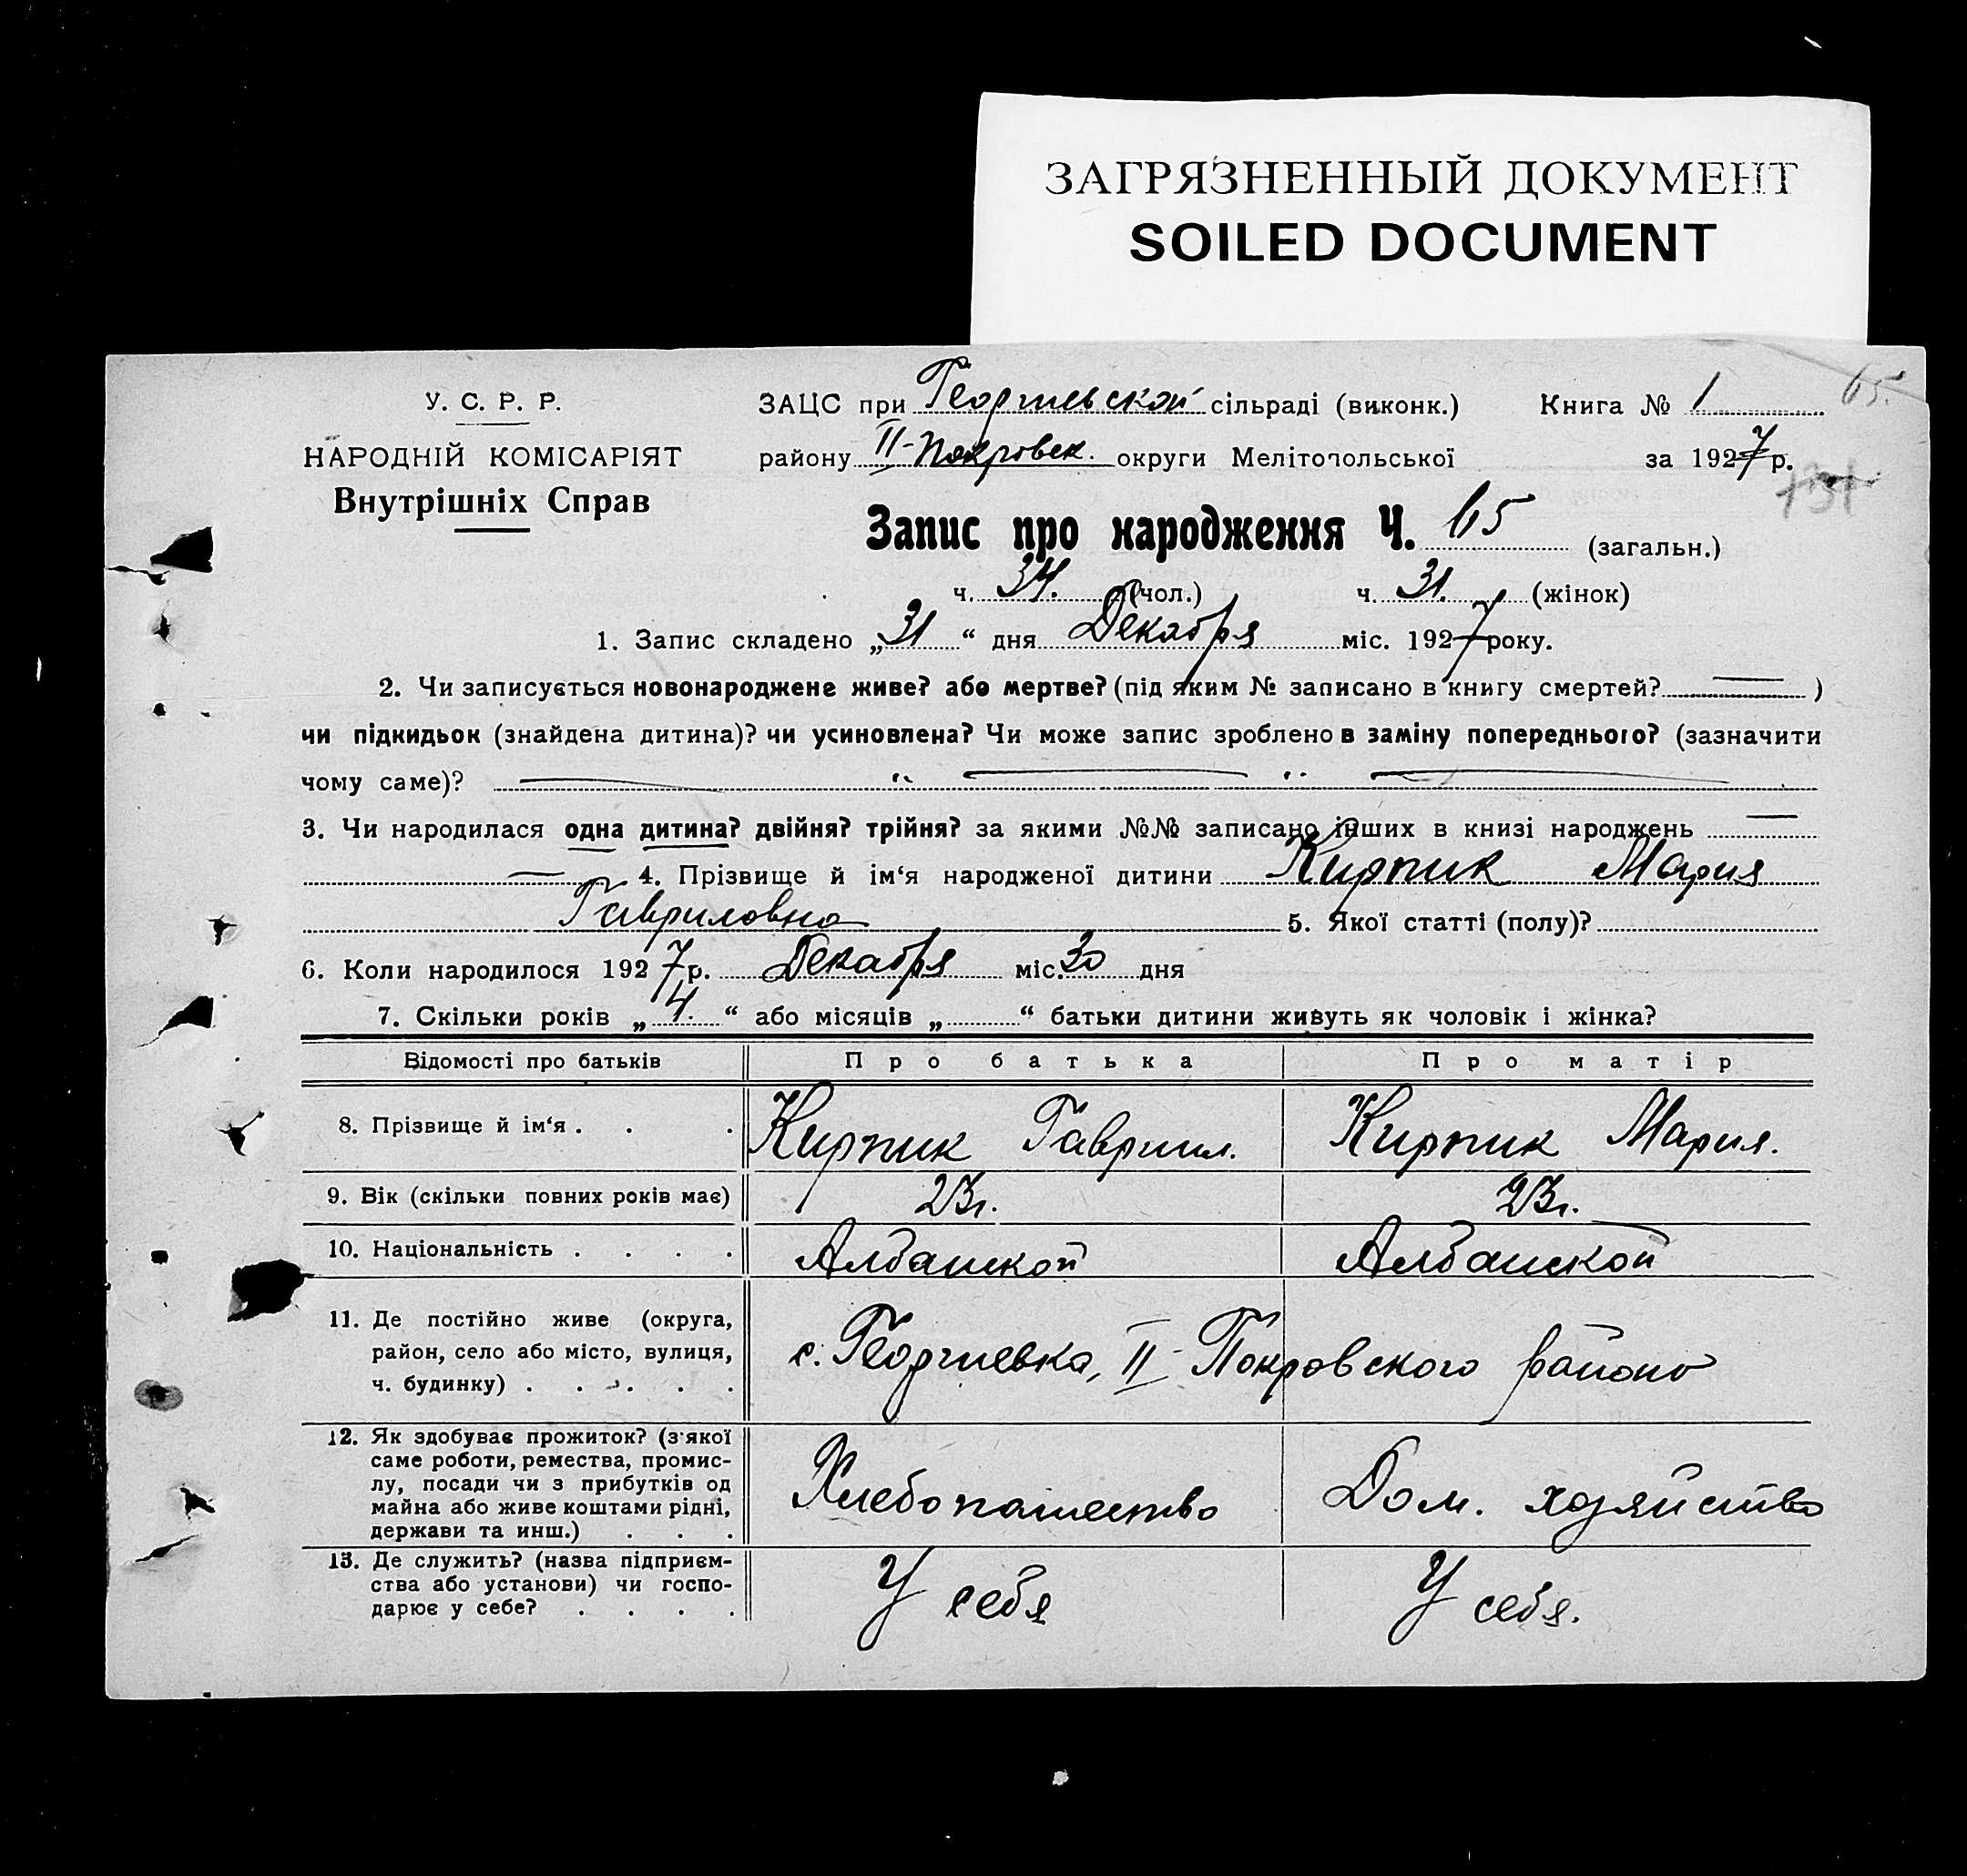 ЗАГРЯЗНЕННЫЙ ДОКУМЕНТ
SOILED DOCUMENT
65.
У. С. Р. Р.
НАРОДНІЙ КОМІСАРІЯТ
Внутрішніх Справ
ЗАЦС при Георгиевской сільраді (виконк.) Книга № 1
району II-Покровск. округи Мелітопольської за 1927 р.
131
Запис про народження Ч. 65 (загальн.)
ч. 34. (чол.) ч. 31. (жінок)
1. Запис складено „31“ дня Декабря міс. 1927 року.
2. Чи записується новонароджене живе? або мертве? (під яким № записано в книгу смертей? — )
чи підкидьок (знайдена дитина)? чи усиновлена? Чи може запис зроблено в заміну попереднього? (зазначити
чому саме)? — „ — „ —
3. Чи народилася одна дитина? двійня? трійня? за якими №№ записано інших в книзі народжень —
— 4. Прізвище й ім‘я народженої дитини Кирпик Мария
Гавриловна 5. Якої статті (полу)?
6. Коли народилося 1927 р. Декабря міс. 30 дня
7. Скільки років „4.“ або місяців „ “ батьки дитини живуть як чоловік і жінка?
Відомості про батьків Про батька Про матір
8. Прізвище й ім‘я . . . Кирпик Гавриил. Кирпик Мария.
9. Вік (скільки повних років має) 23г. 23г.
10. Національність . . . . Албанской Албанской
11. Де постійно живе (округа,
район, село або місто, вулиця,
ч. будинку) . . . . . с. Георгиевка, II-Покровского района
12. Як здобуває прожиток? (з'якої
саме роботи, ремества, промис-
лу, посади чи з прибутків од
майна або живе коштами рідні,
держави та инш.) . . . Хлебопашество Дом. хозяйство
13. Де служить? (назва підприєм-
ства або установи) чи госпо-
дарює у себе? . . . . У себя У себя.